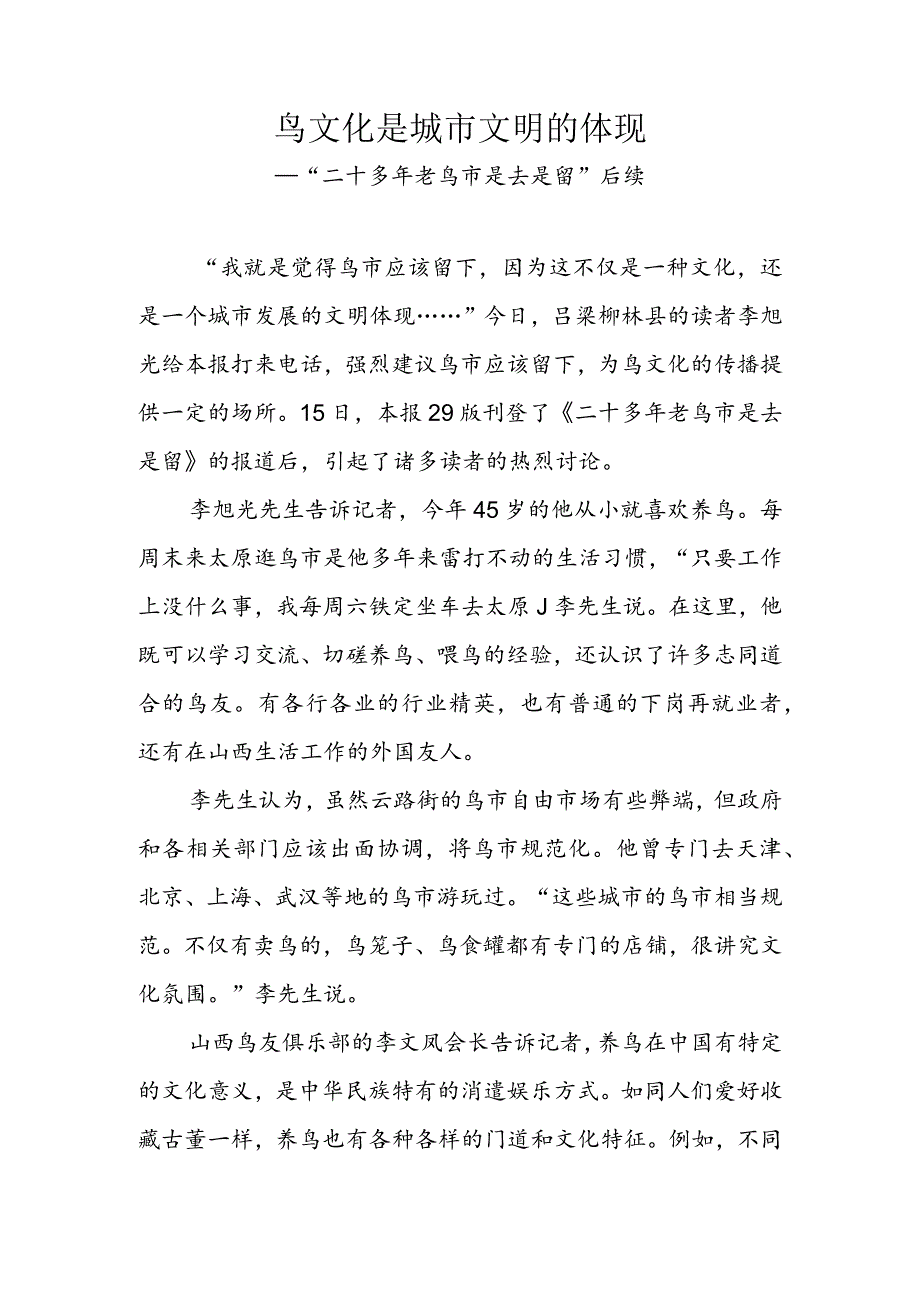 鸟文化是城市文明的体现
—“二十多年老鸟市是去是留”后续
“我就是觉得鸟市应该留下，因为这不仅是一种文化，还
是一个城市发展的文明体现……”今日，吕梁柳林县的读者李旭
光给本报打来电话，强烈建议鸟市应该留下，为鸟文化的传播提
供一定的场所。15 日，本报 29 版刊登了《二十多年老鸟市是去
是留》的报道后，引起了诸多读者的热烈讨论。
李旭光先生告诉记者，今年 45 岁的他从小就喜欢养鸟。每
周末来太原逛鸟市是他多年来雷打不动的生活习惯，“只要工作
上没什么事，我每周六铁定坐车去太原 J 李先生说。在这里，他
既可以学习交流、切磋养鸟、喂鸟的经验，还认识了许多志同道
合的鸟友。有各行各业的行业精英，也有普通的下岗再就业者，
还有在山西生活工作的外国友人。
李先生认为，虽然云路街的鸟市自由市场有些弊端，但政府
和各相关部门应该出面协调，将鸟市规范化。他曾专门去天津、
北京、上海、武汉等地的鸟市游玩过。“这些城市的鸟市相当规
范。不仅有卖鸟的，鸟笼子、鸟食罐都有专门的店铺，很讲究文
化氛围。”李先生说。
山西鸟友俱乐部的李文凤会长告诉记者，养鸟在中国有特定
的文化意义，是中华民族特有的消遣娱乐方式。如同人们爱好收
藏古董一样，养鸟也有各种各样的门道和文化特征。例如，不同